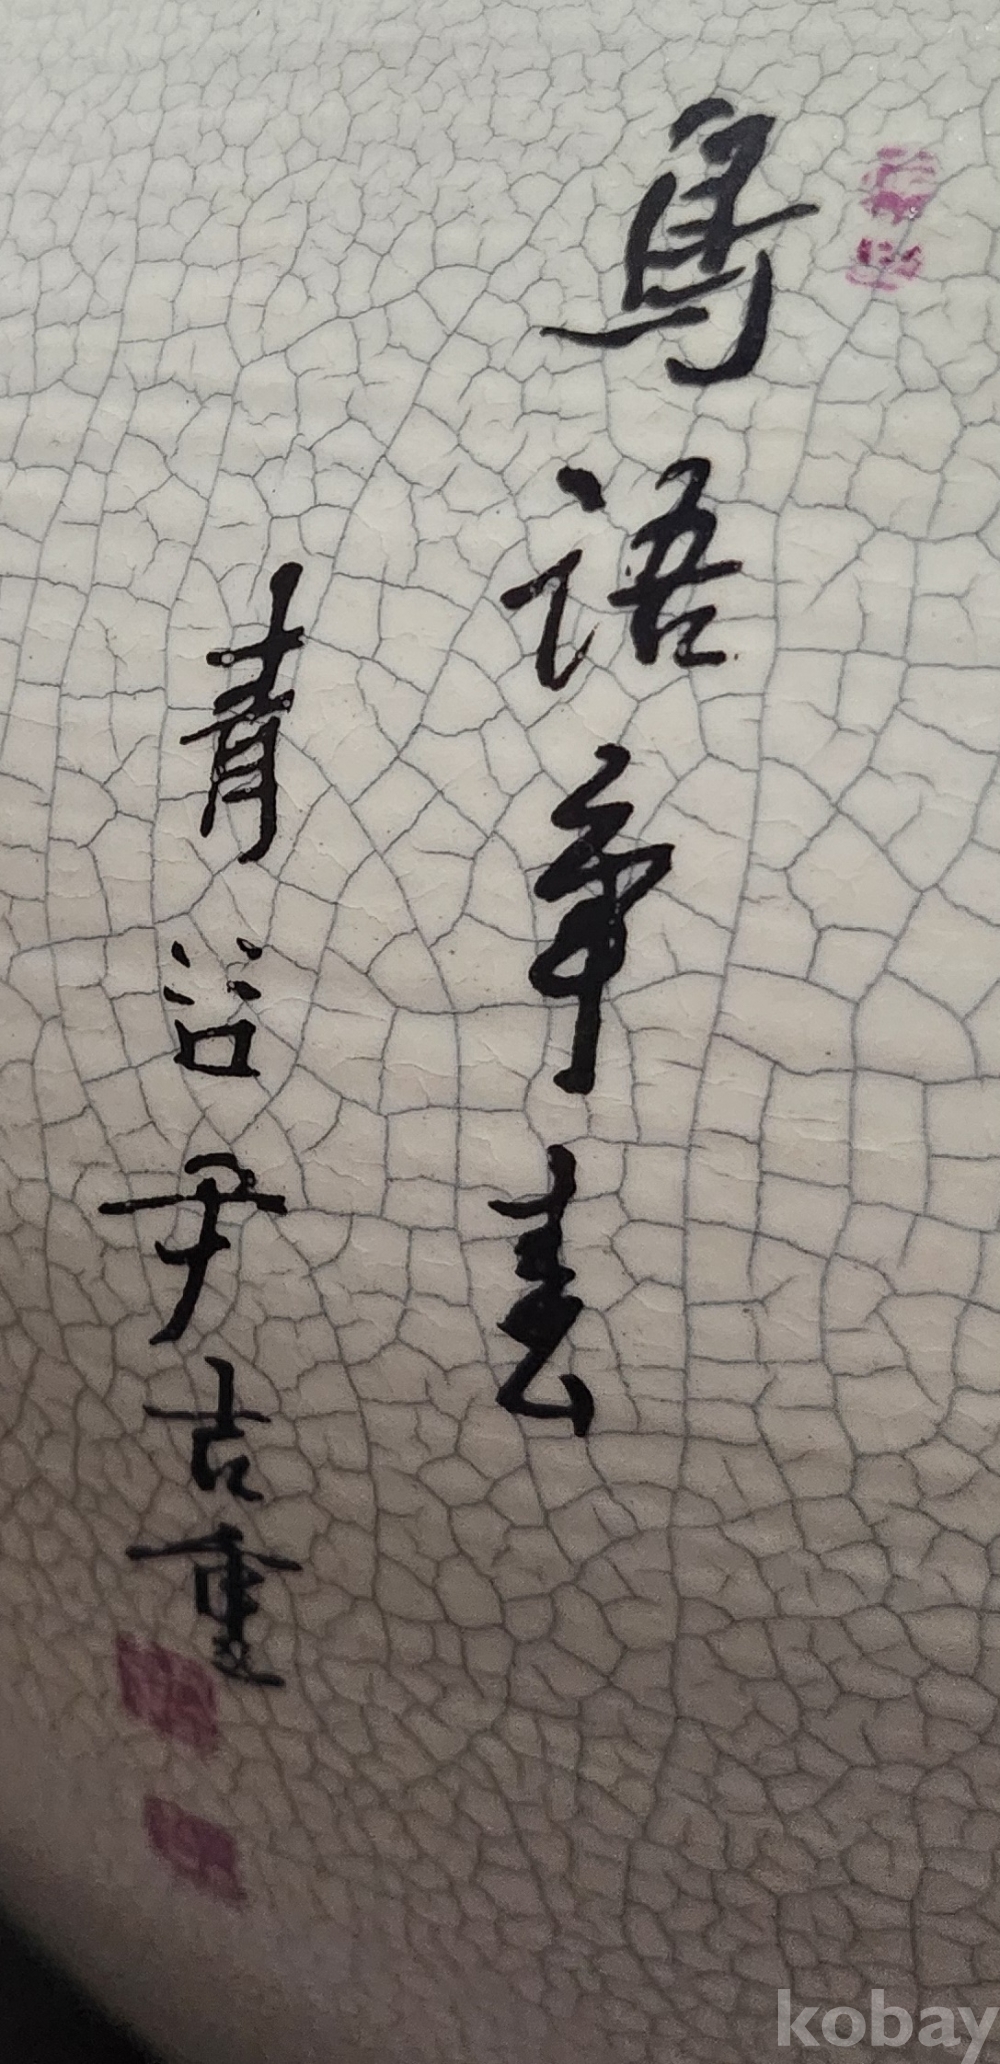 鳥語爭春
靑谷尹吉重
kobay